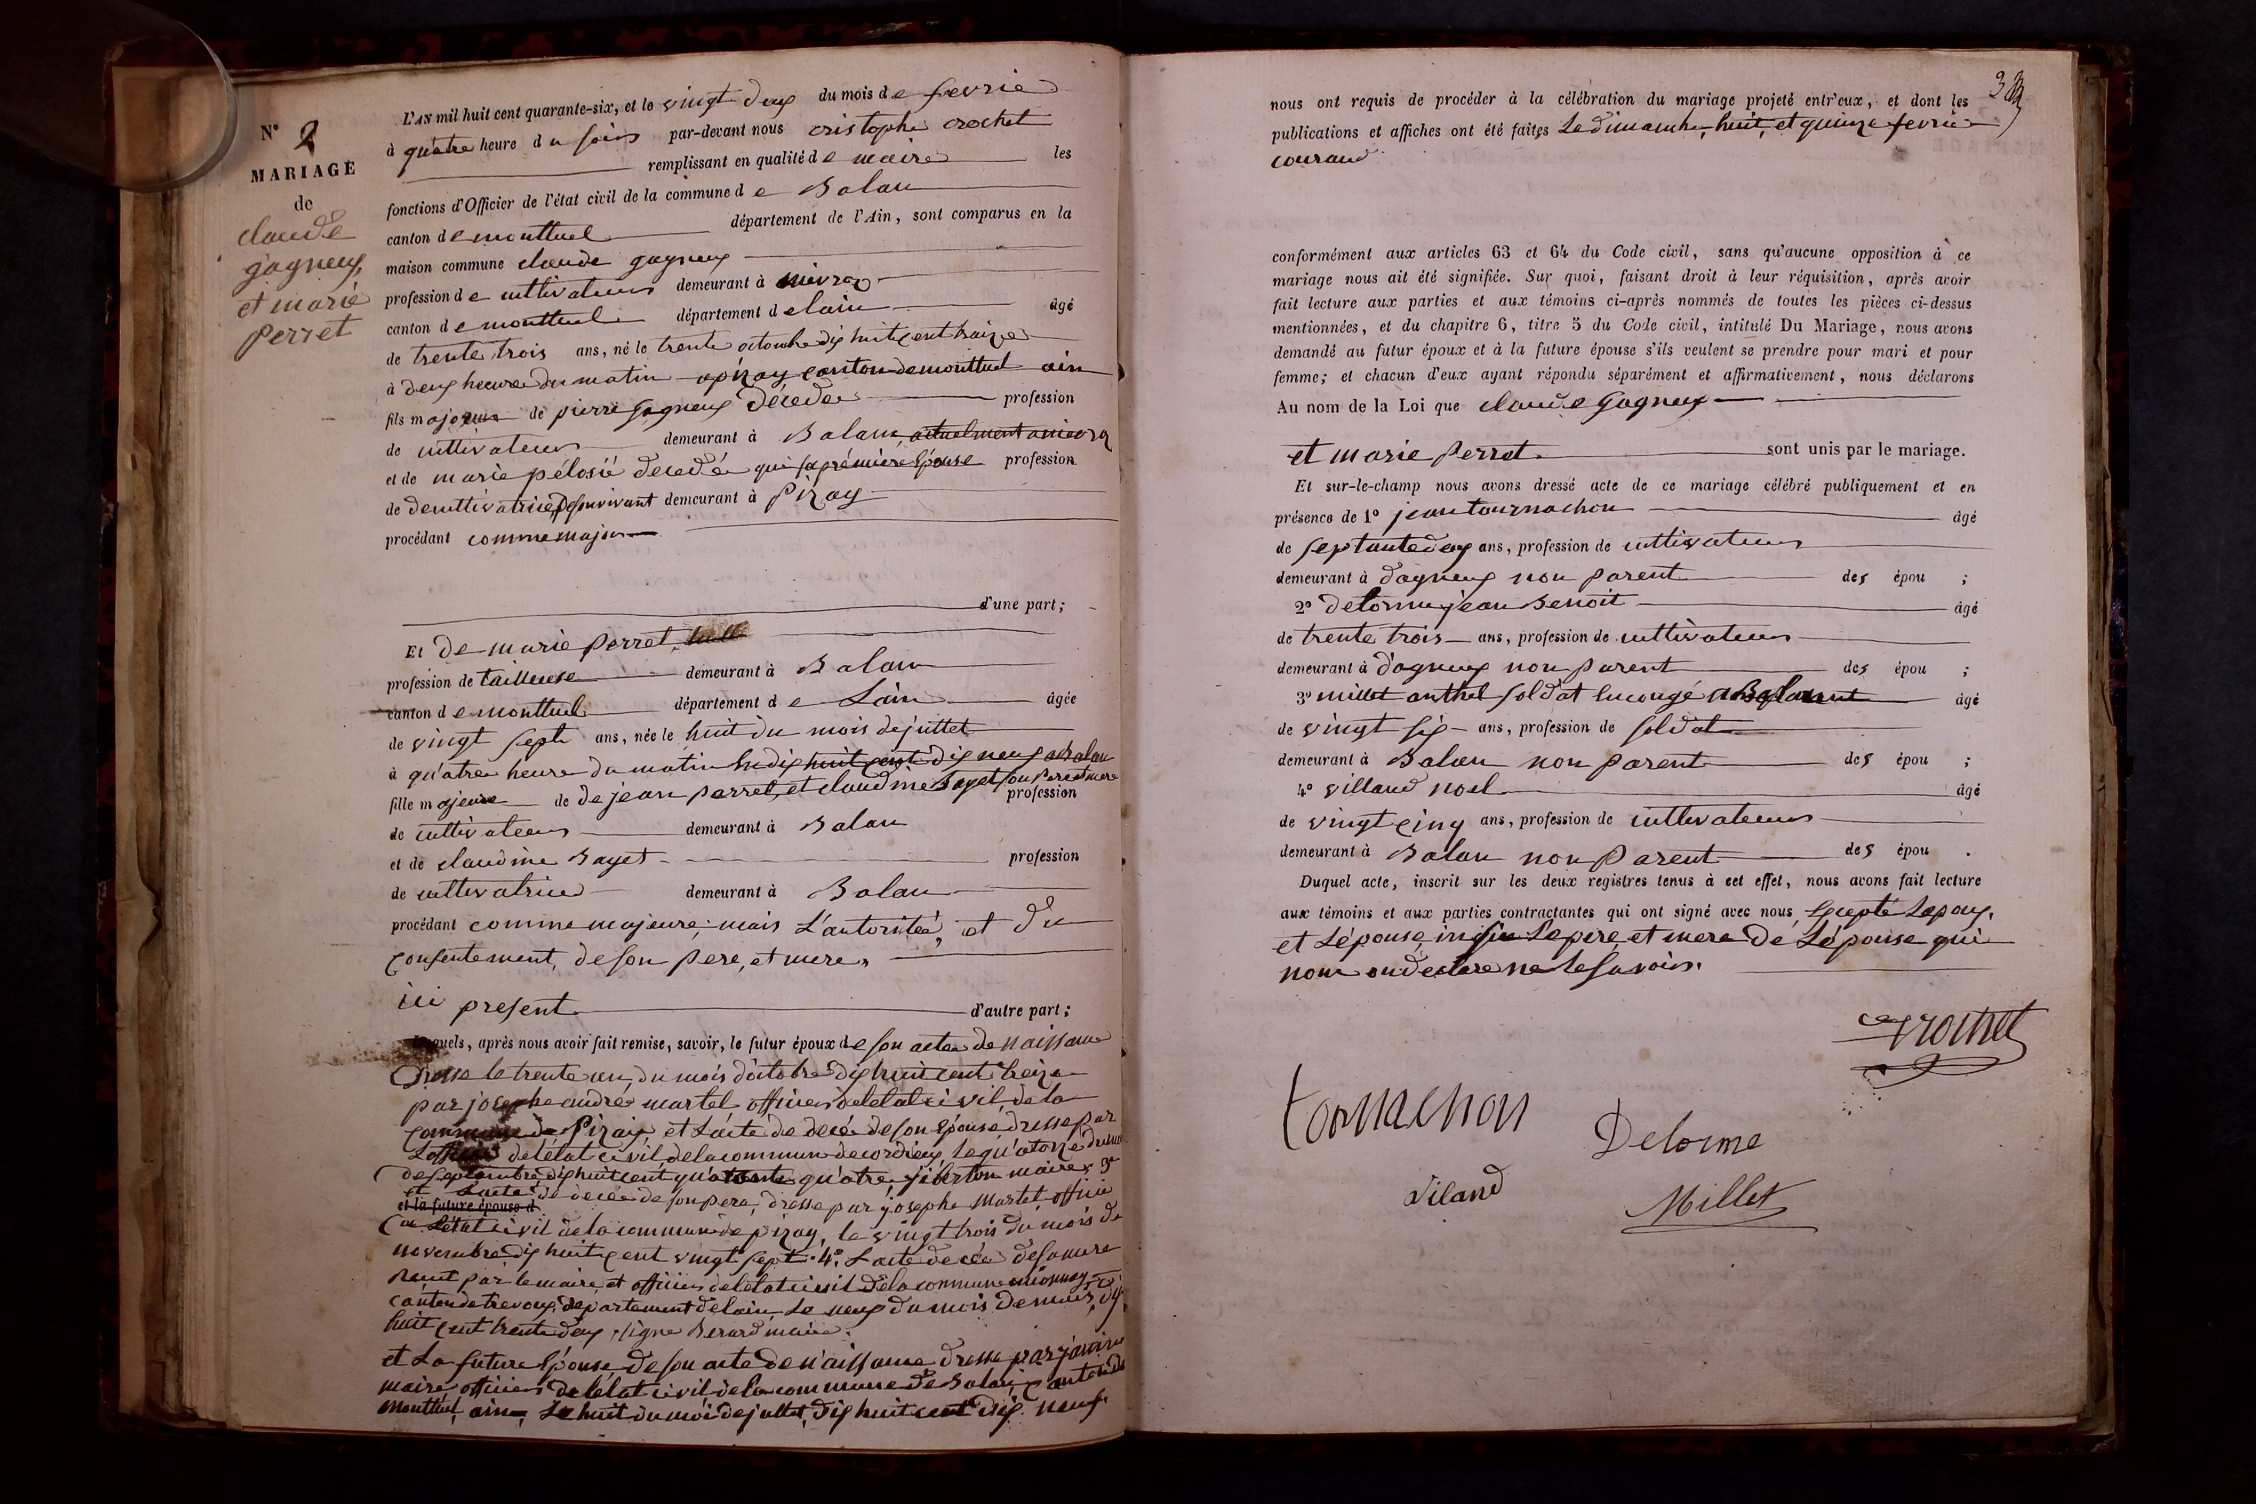 N° 2
MARIAGE
de
claude
gagneux
et marie
perret
L'AN mil huit cent quarante-six, et le vingt deux du mois de fevrie
à quatre heure du soir par-devant nous cristophe crochet
remplissant en qualité de maire les
fonctions d'Officier de l'état civil de la commune de Balan
canton de montluel département de l'Ain, sont comparus en la
maison commune claude gagneux
profession de cultivateur demeurant à
canton de montluel département de lain âgé
de trente trois ans, né le trente octoubre dix huit cent traize
à deux heure du matin a pizay canton de montluel ain
fils majeur de pierre gagneux décédé profession
de cultivateur demeurant à Balan actuelment a
et de marie pélosié décedé qui sa prémière épouse profession
de de cultivatrice de son vivant demeurant à Pizay
procédant comme majeur
d'une part;
Et de marie perret
profession de tailleuse demeurant à Balan
canton de montluel département de Lain âgée
de vingt sept ans, née le huit du mois de juillet
à qu'atre heure du matin dix huit cent dix neuf a Balan
fille majeure de de jean perret, et claudine Bayet son pere et mere
profession
de cultivateur demeurant à Balan
et de claudine Bayet profession
de cultivatrice demeurant à Balan
procédant comme majeure, mais L'autoritée, et du
consentement, de son pere, et mere,
ici present d'autre part;
Lesquels, après nous avoir fait remise, savoir, le futur époux de son acte de naissance
Dresse le trente un, du mois d'octobre dix huit cent treize
par josephe andré martel officier de letat civil de la
commune de Pizay et Lacte de décé de son épouse dresse par
L'officier de létat civil de la commune de cordieux, le qu'atorze du mois
de septembre dix huit cent qu'arante qu'atre, jiberton maire, 3°
et Lacte de décée de son pere, dresse par josephe Martel officie
et la future épouse d
de L'état civil de la commune de pizay, le vingt trois du mois de
novembre dix huit cent vingt sept. 4°. Lacte de cée de sa mere
recut par le maire, et officier de letat civil de la commune mionnay
canton de trevoux, departement de lain Le neuf du mois de mars, dix
huit cent trente deux, signe Berard maire.
et La future épouse de son acte de n'aissance, dresse par janvier
maire officier de l'état civil de la commune de Balan, canton de
montluel ain, Le huit du moi de juillet, dix huit cent dix neuf.
nous ont requis de procéder à la célébration du mariage projeté entr'eux, et dont les
publications et affiches ont été faites Le dimanche, huit, et quinze fevrie
courand
conformément aux articles 63 et 64 du Code civil, sans qu'aucune opposition à ce
mariage nous ait été signifiée. Sur quoi, faisant droit à leur réquisition, après avoir
fait lecture aux parties et aux témoins ci-après nommés de toutes les pièces ci-dessus
mentionnées, et du chapitre 6, titre 5 du Code civil, intitulé Du Mariage, nous avons
demandé au futur époux et à la future épouse s'ils veulent se prendre pour mari et pour
femme; et chacun d'eux ayant répondu séparément et affirmativement, nous déclarons
Au nom de la Loi que claude Gagneux
et marie perret sont unis par le mariage.
Et sur-le-champ nous avons dressé acte de ce mariage célébré publiquement et en
présence de 1° jean tournachon âgé
de septante deux ans, profession de cultivateur
demeurant à dagneux non parent des épou ;
2° delorme jean Benoit âgé
de trente trois ans, profession de cultivateur
demeurant à dagneux non parent des épou ;
3° millet anthel soldat en congé âgé
de vingt six ans, profession de soldat
demeurant à Balan non parent des épou ;
4° villaud noel âgé
de vingt cinq ans, profession de cultivateur
demeurant à Balan non parent des épou .
Duquel acte, inscrit sur les deux registres tenus à cet effet, nous avons fait lecture
aux témoins et aux parties contractantes qui ont signé avec nous, Excepté Lepoux,
et Lépouse, insi Le pere, et mere de L'épouse qui
nous on declare ne le savoir.
Crochet
tornachon
Delorme
Viland
Millet